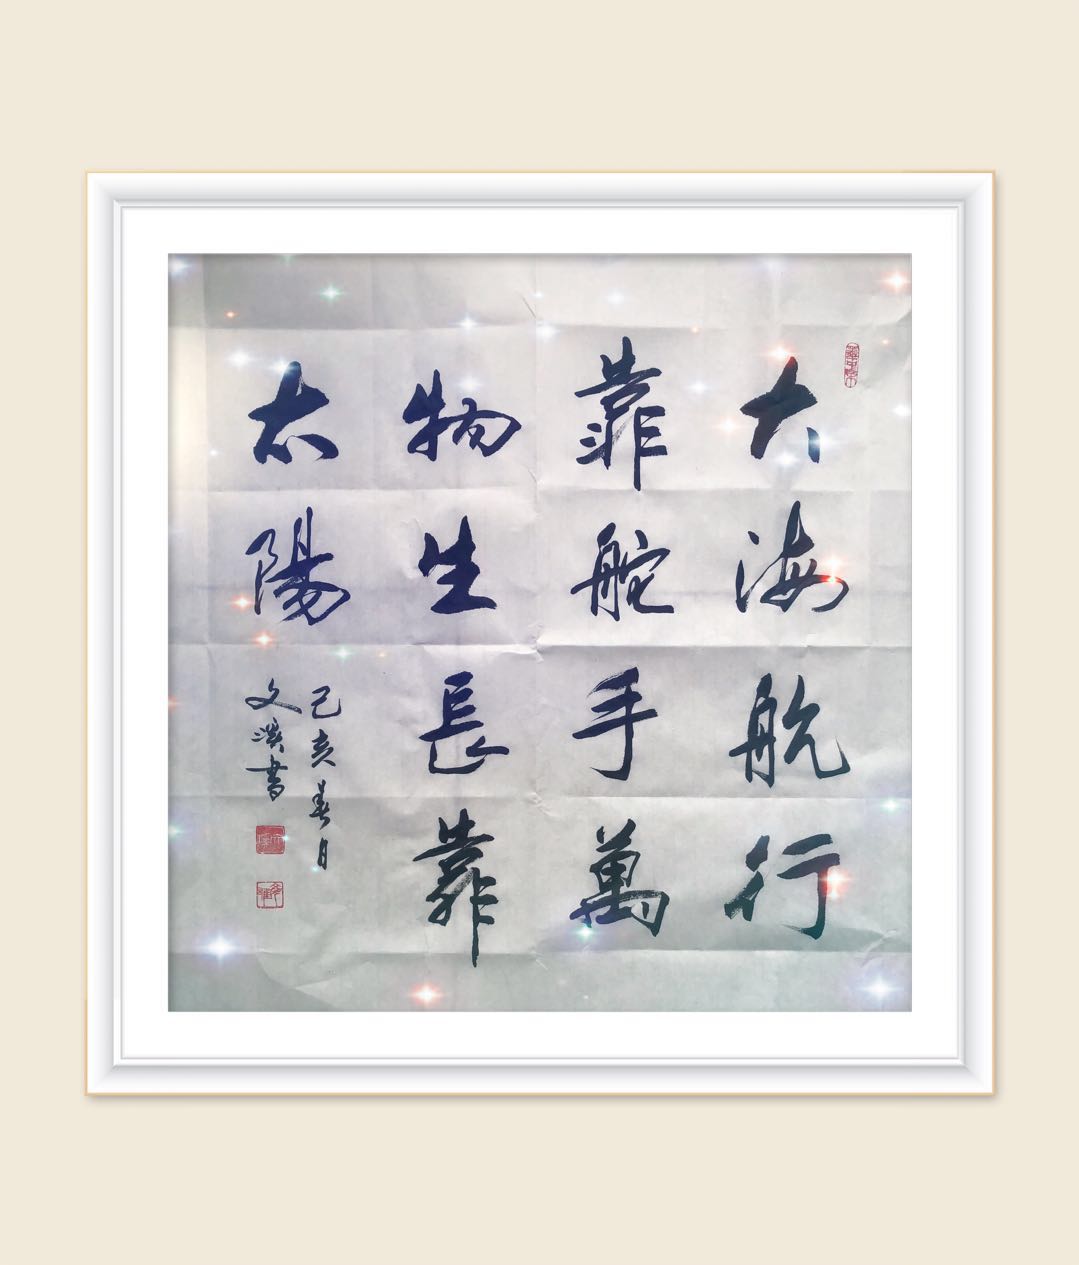 大海航行
靠舵手萬
物生長靠
太陽
己亥春月
文淡書